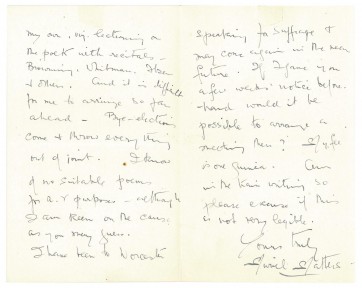 my own, viz lecturing on
the poets with recitals –
Browning, Whitman, Ibsen
& others. And it is difficult
for me to arrange so far
ahead – Bye-elections
come & throw everything
out of joint. I know
of no suitable poems
for a purpose – although
I am keen on the cause,
as you may guess.
I have been to Worcester
speaking for Suffrage &
may come again in the near
future. If I gave you
a few weeks' notice before-
hand would it be
possible to arrange a
meeting then? My fee
is one guinea. Am
in the train writing so
please excuse if this
is not very legible.
Yours truly
Muriel Matters